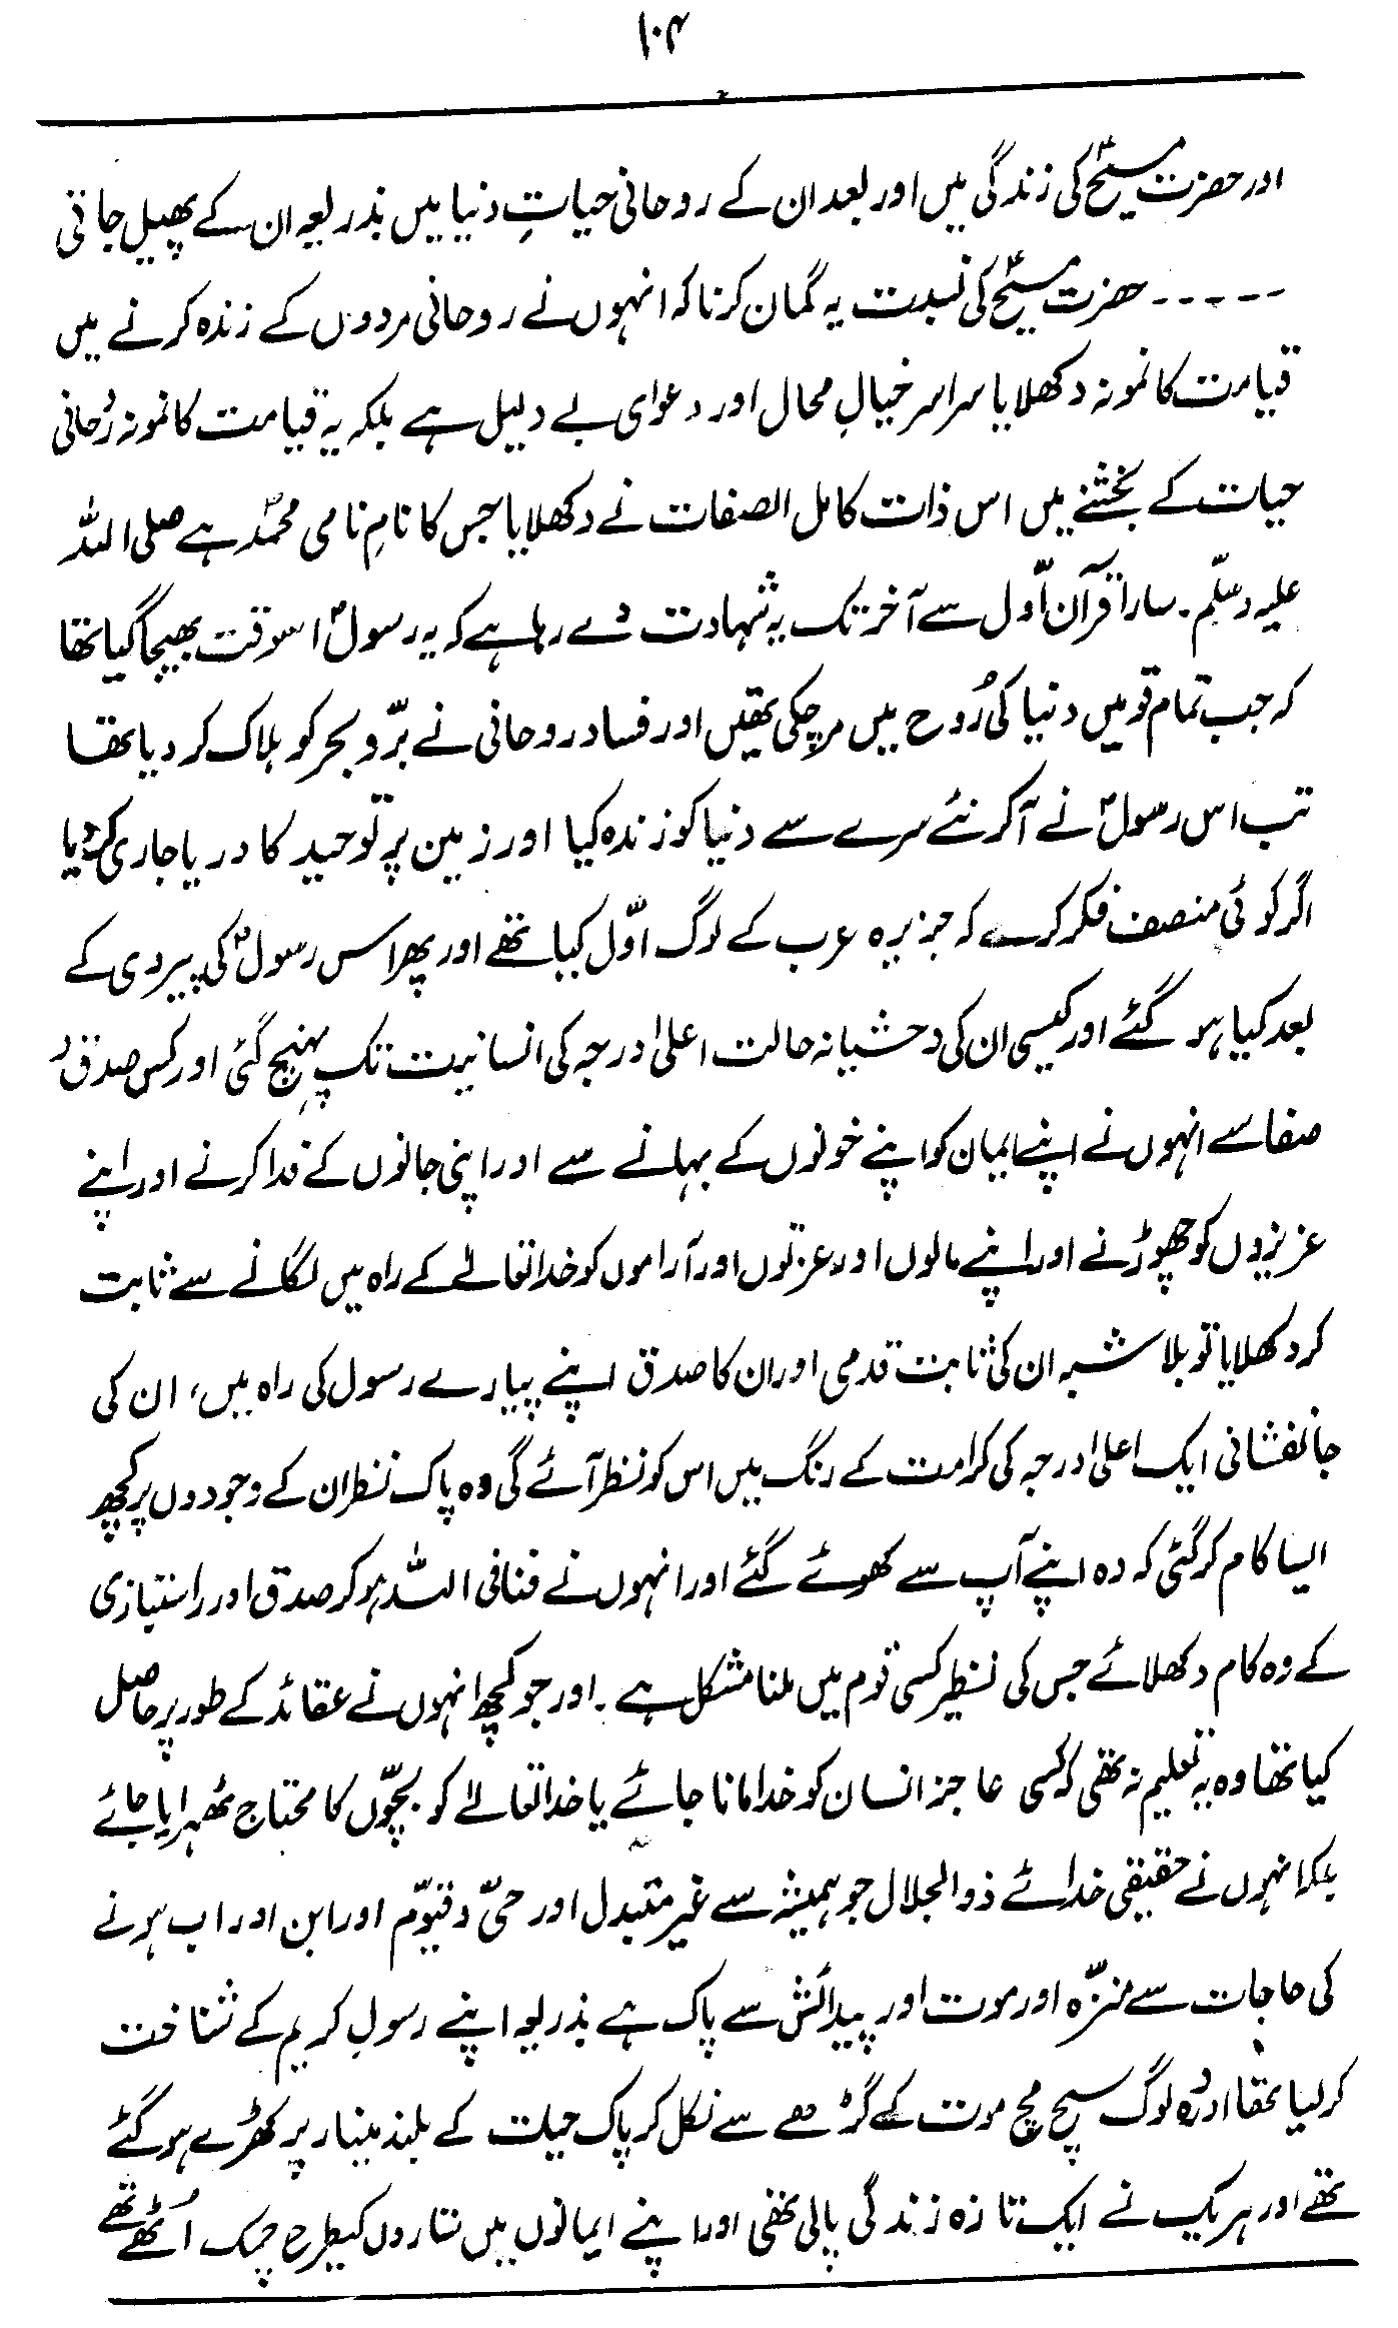 ۱۰۴
اور حضرت مسیحؑ کی زندگی میں اور بعد ان کے روحانی حیاتِ دنیا میں بذریعہ ان کے پھیل جاتی
----- حضرت مسیحؑ کی نسبت یہ گمان کرنا کہ انہوں نے روحانی مردوں کے زندہ کرنے میں
قیامت کا نمونہ دکھلایا سراسر خیالِ محال اور دعوای بے دلیل ہے بلکہ یہ قیامت کا نمونہ رُحانی
حیات کے بخشنے میں اس ذات کامل الصفات نے دکھلایا جس کا نامِ نامی محمدؐ ہے صلی اللہ
علیہ وسلّم۔ سارا قرآن اوّل سے آخر تک یہ شہادت دے رہا ہے کہ یہ رسولؐ اسوقت بھیجا گیا تھا
کہ جب تمام قومیں دنیا کی رُوح میں مر چکی تھیں اور فساد روحانی نے برّ و بحر کو ہلاک کر دیا تھا
تب اس رسولؐ نے آکر نئے سرے سے دنیا کو زندہ کیا اور زمین پر توحید کا دریا جاری کر دیا
اگر کوئی منصف فکر کرے کہ جزیرہ عرب کے لوگ اوّل کیا تھے اور پھر اس رسولؐ کی پیروی کے
بعد کیا ہو گئے اور کیسی ان کی وحشیانہ حالت اعلیٰ درجہ کی انسانیت تک پہنچ گئی اور کس صدق و
صفا سے انہوں نے اپنے ایمان کو اپنے خونوں کے بہانے سے اور اپنی جانوں کے فدا کرنے اور اپنے
عزیزوں کو چھوڑنے اور اپنے مالوں اور عزتوں اور آراموں کو خدا تعالےٰ کے راہ میں لگانے سے ثابت
کر دکھلایا تو بلاشبہ ان کی ثابت قدمی اور ان کا صدق اپنے پیارے رسول کی راہ میں، ان کی
جانفشانی ایک اعلیٰ درجہ کی کرامت کے رنگ میں اس کو نظر آئے گی وہ پاک نظر ان کے وجودوں پر کچھ
ایسا کام کر گئی کہ وہ اپنے آپ سے کھوئے گئے اور انہوں نے فنا فی اللہ ہو کر صدق اور راستبازی
کے وہ کام دکھلائے جس کی نظیر کسی قوم میں ملنا مشکل ہے۔ اور جو کچھ انہوں نے عقائد کے طور پر حاصل
کیا تھا وہ یہ تعلیم نہ تھی کہ کسی عاجز انسان کو خدا مانا جائے یا خدا تعالےٰ کو بچّوں کا محتاج ٹھہرایا جائے
بلکہ انہوں نے حقیقی خدائے ذوالجلال جو ہمیشہ سے غیر متبدل اور حیّ و قیوّم اور ابن اور اب ہونے
کی حاجات سے منزّہ اور موت اور پیدائش سے پاک ہے بذریعہ اپنے رسولِ کریم کے شناخت
کر لیا تھا اور وہ لوگ سچ مچ موت کے گڑھے سے نکل کر پاک حیات کے بلند مینار پر کھڑے ہو گئے
تھے اور ہر یک نے ایک تازہ زندگی پالی تھی اور اپنے ایمانوں میں ستاروں کیطرح چمک اُٹھے تھے